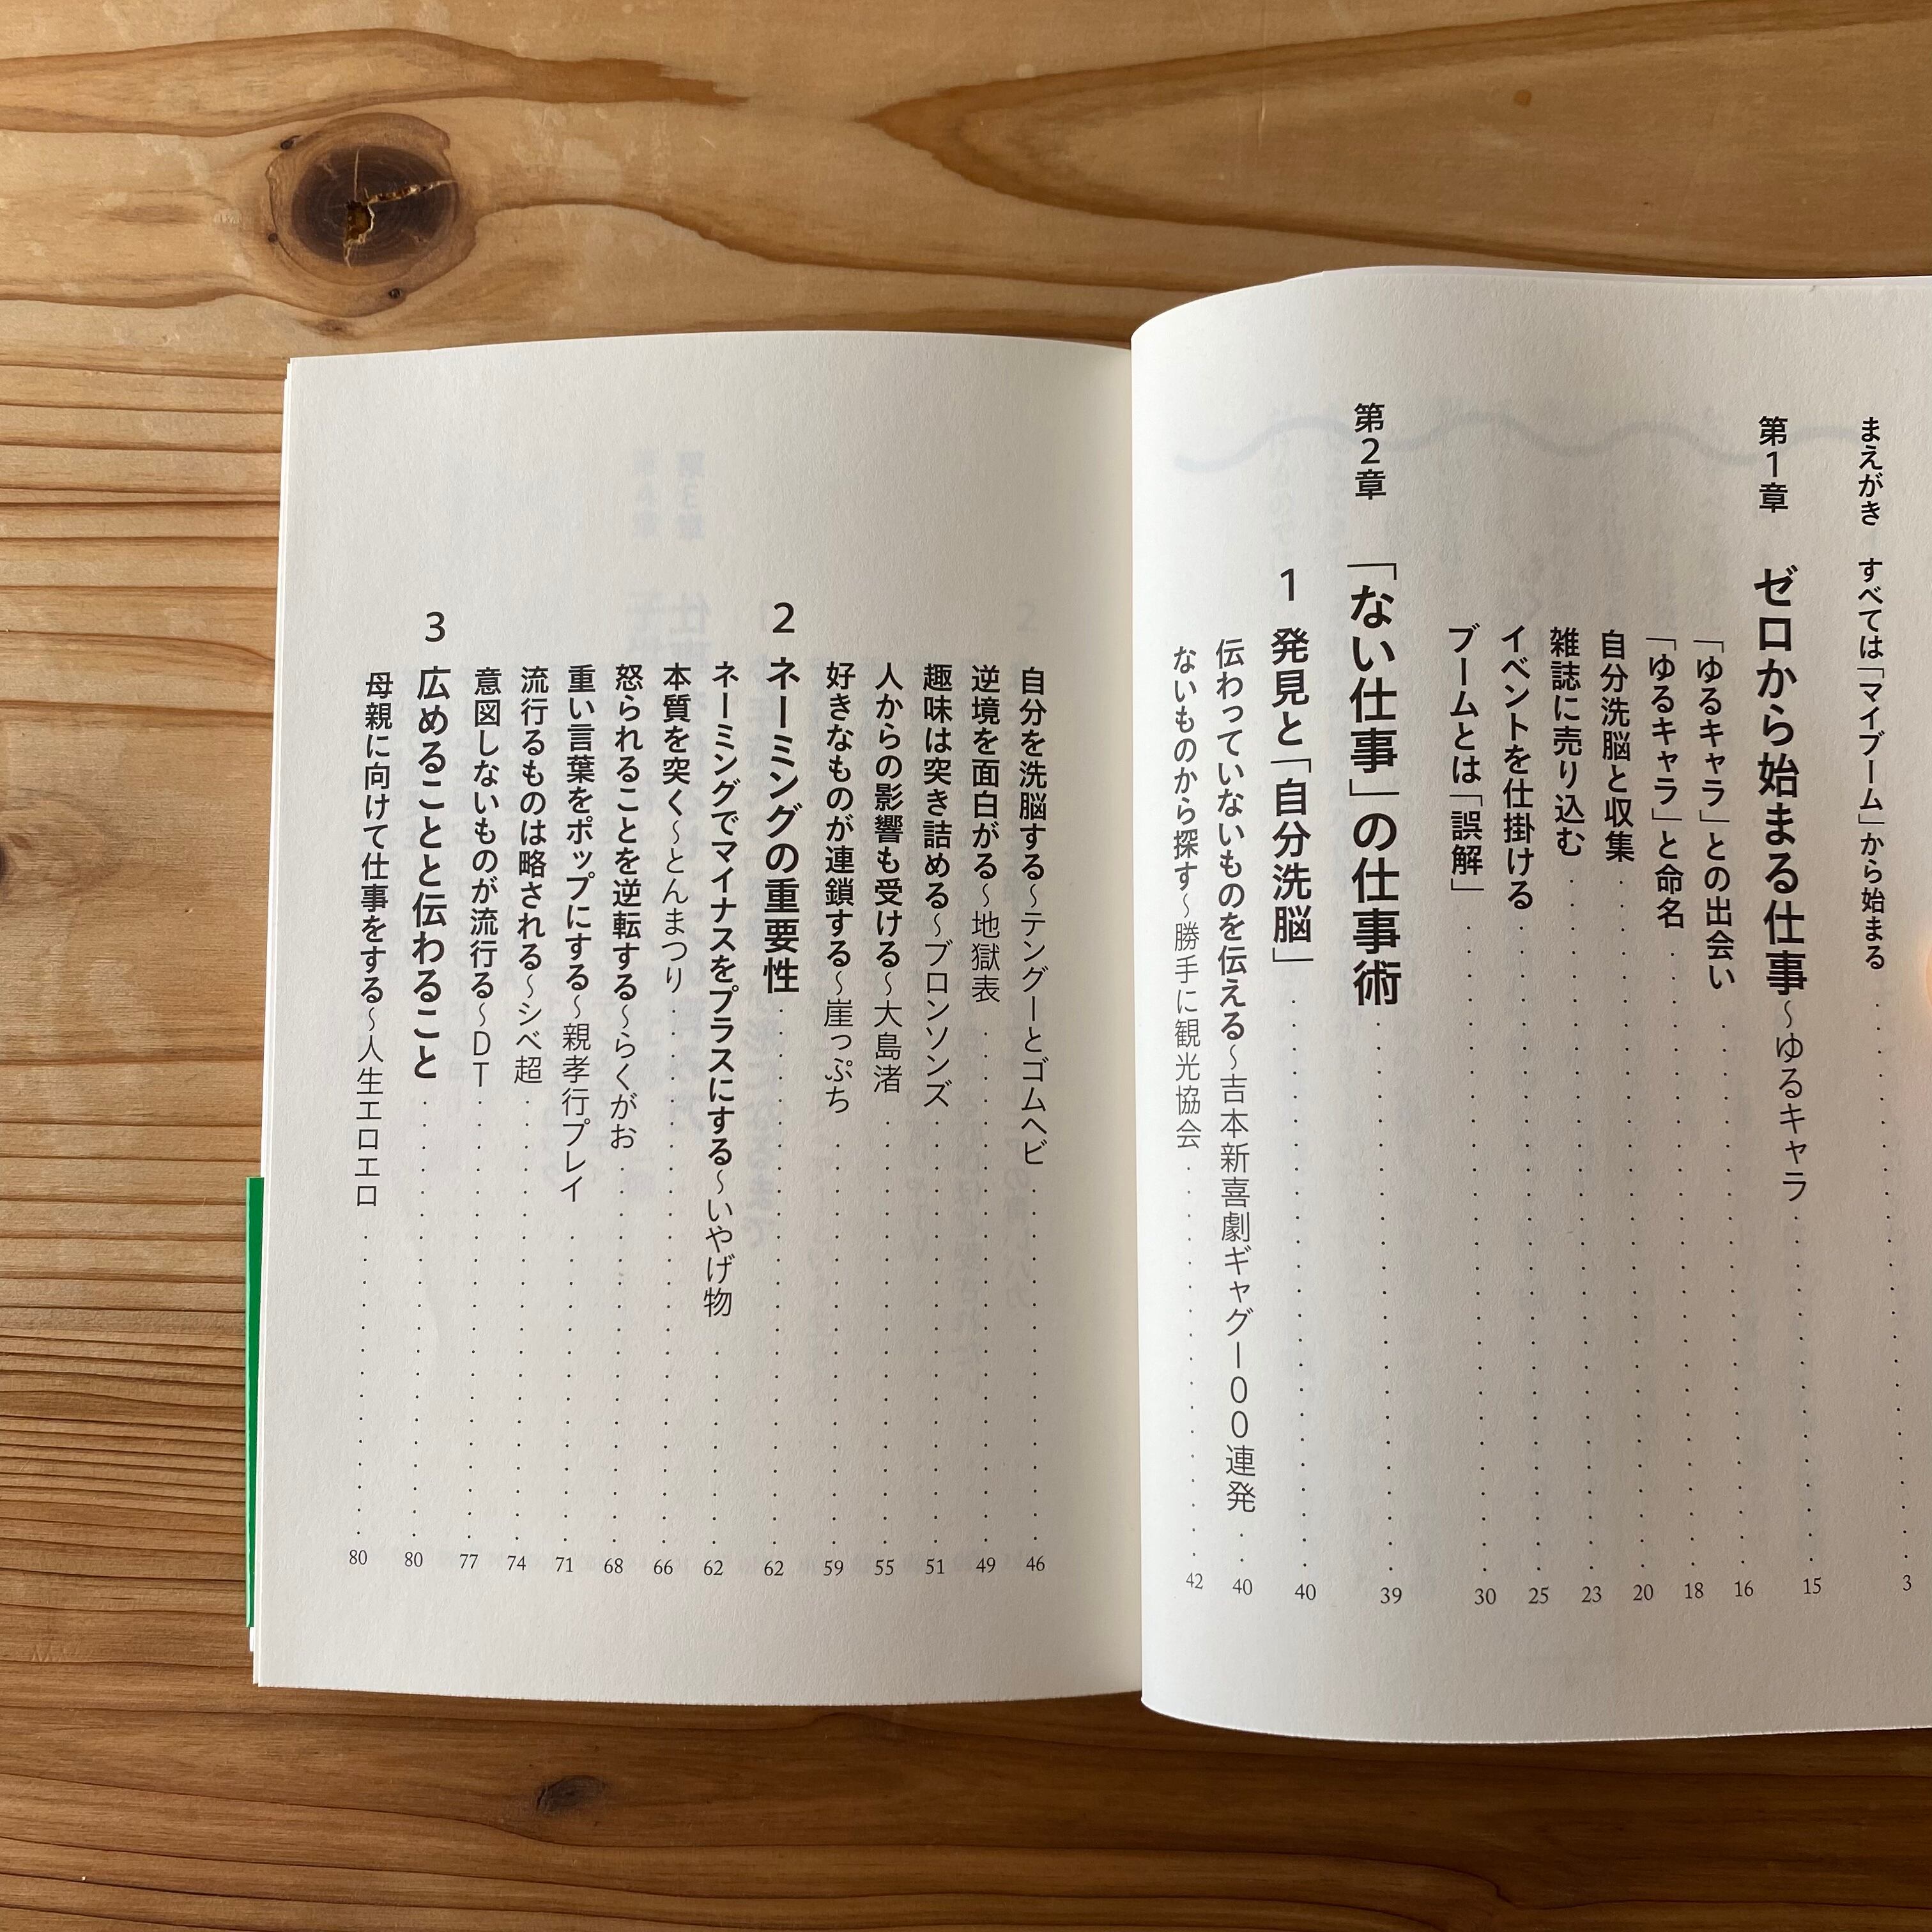 まえがき　すべては「マイブーム」から始まる 3
第1章　ゼロから始まる仕事～ゆるキャラ 15
「ゆるキャラ」との出会い 16
「ゆるキャラ」と命名 18
自分洗脳と収集 20
雑誌に売り込む 23
イベントを仕掛ける 25
ブームとは「誤解」 30
第2章　「ない仕事」の仕事術 39
1 発見と「自分洗脳」 40
伝わっていないものを伝える～吉本新喜劇ギャグ一〇〇連発 40
ないものから探す～勝手に観光協会 42
自分を洗脳する～テングーとゴムヘビ 46
逆境を面白がる～地獄表 49
趣味は突き詰める～ブロンソンズ 51
人からの影響も受ける～大島渚 55
好きなものが連鎖する～崖っぷち 59
2 ネーミングの重要性 62
ネーミングでマイナスをプラスにする～いやげ物 62
本質を突く～とんまつり 66
怒られることを逆転する～らくがお 68
重い言葉をポップにする～親孝行プレイ 71
流行るものは略される～シベ超 74
意図しないものが流行る～DT 77
3 広めることと伝わること 80
母親に向けて仕事をする～人生エロエロ 80